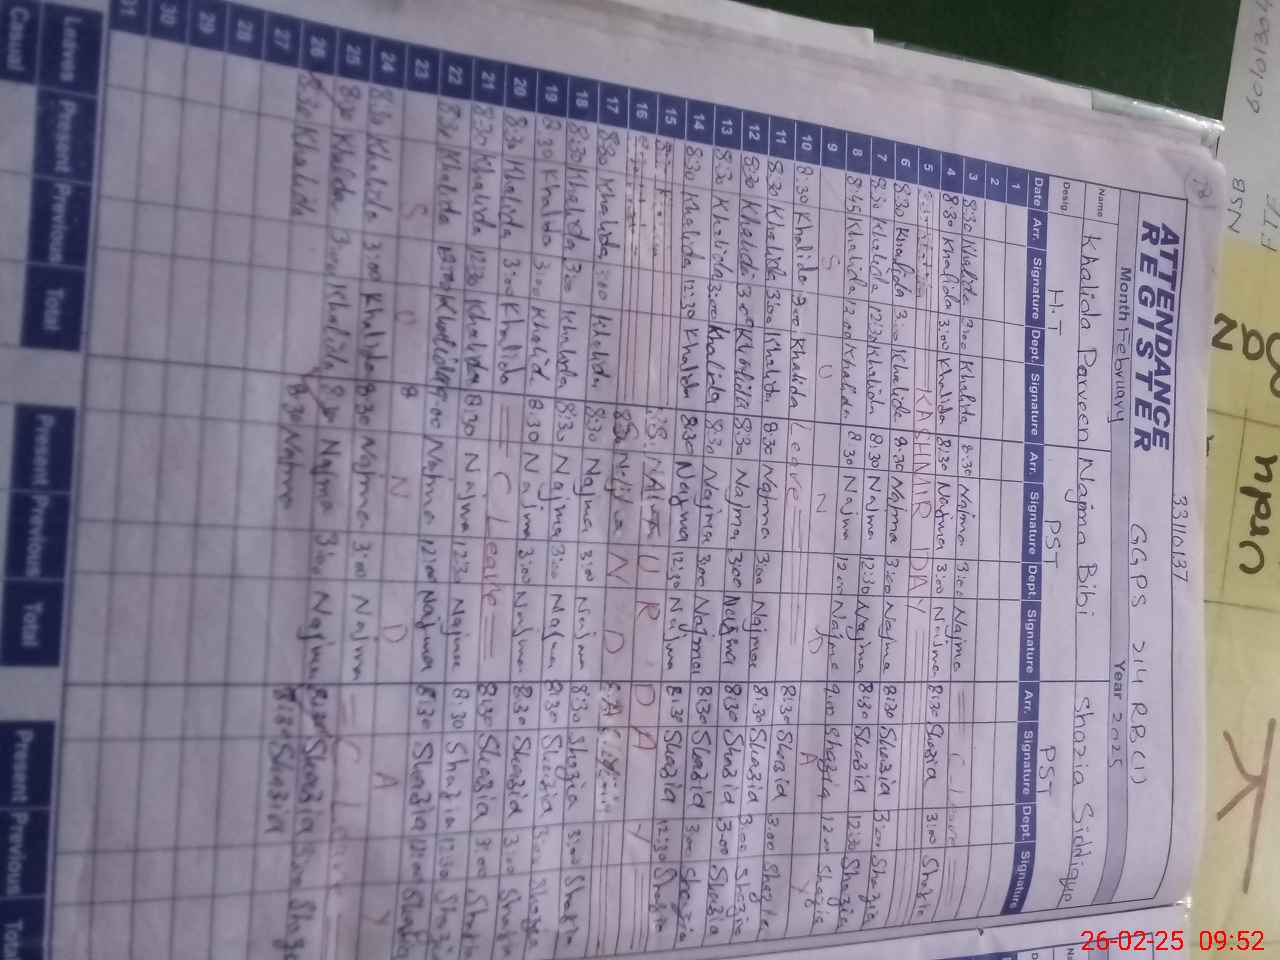 18
3311 0137
ATTENDANCE
REGISTER
GGPS 214 RB(1)
Month February Year 2025
Name Khalida Parveen Najma Bibi Shazia Siddique
Desig H.T PST PST
Date Arr. Signature Dept. Signature Arr. Signature Dept. Signature Arr. Signature Dept. Signature
1
2
3 8:30 Khalida 3:00 Khalida 8:30 Najma 3:00 Najma C Leave
4 8:30 Khalida 3:00 Khalida 8:30 Najma 3:00 Najma 8:30 Shazia 3:00 Shazia
5 KASHMIR DAY
6 8:30 Khalida 3:00 Khalida 8:30 Najma 3:00 Najma 8:30 Shazia 3:00 Shazia
7 8:30 Khalida 12:30 Khalida 8:30 Najma 12:30 Najma 8:30 Shazia 12:30 Shazia
8 8:45 Khalida 12:00 Khalida 8:30 Najma 12:00 Najma 9:00 Shazia 12:00 Shazia
9 S U N D A Y
10 8:30 Khalida 3:00 Khalida Leave 8:30 Shazia 3:00 Shazia
11 8:30 Khalida 3:00 Khalida 8:30 Najma 3:00 Najma 8:30 Shazia 3:00 Shazia
12 8:30 Khalida 3:00 Khalida 8:30 Najma 3:00 Najma 8:30 Shazia 3:00 Shazia
13 8:30 Khalida 3:00 Khalida 8:30 Najma 3:00 Najma 8:30 Shazia 3:00 Shazia
14 8:30 Khalida 12:30 Khalida 8:30 Najma 12:30 Najma 8:30 Shazia 12:30 Shazia
15 S A T U R D A Y
16 S U N D A Y
17 8:30 Khalida 3:00 Khalida 8:30 Najma 3:00 Najma 8:30 Shazia 3:00 Shazia
18 8:30 Khalida 3:00 Khalida 8:30 Najma 3:00 Najma 8:30 Shazia 3:00 Shazia
19 8:30 Khalida 3:00 Khalida 8:30 Najma 3:00 Najma 8:30 Shazia 3:00 Shazia
20 8:30 Khalida 3:00 Khalida C Leave 8:30 Shazia 3:00 Shazia
21 8:30 Khalida 12:30 Khalida 8:30 Najma 12:30 Najma 8:30 Shazia 12:30 Shazia
22 8:30 Khalida 12:00 Khalida 9:00 Najma 12:00 Najma 8:30 Shazia 12:00 Shazia
23 S U N D A Y
24 8:30 Khalida 3:00 Khalida 8:30 Najma 3:00 Najma C Leave
25 8:30 Khalida 3:00 Khalida 8:30 Najma 3:00 Najma 8:30 Shazia 3:00 Shazia
26 8:30 Khalida 8:30 Najma 8:30 Shazia
27
28
29
30
31
Leaves Present Previous Total Present Previous Total Present Previous Total
Casual
NSB
Urdu
26-02-25 09:52